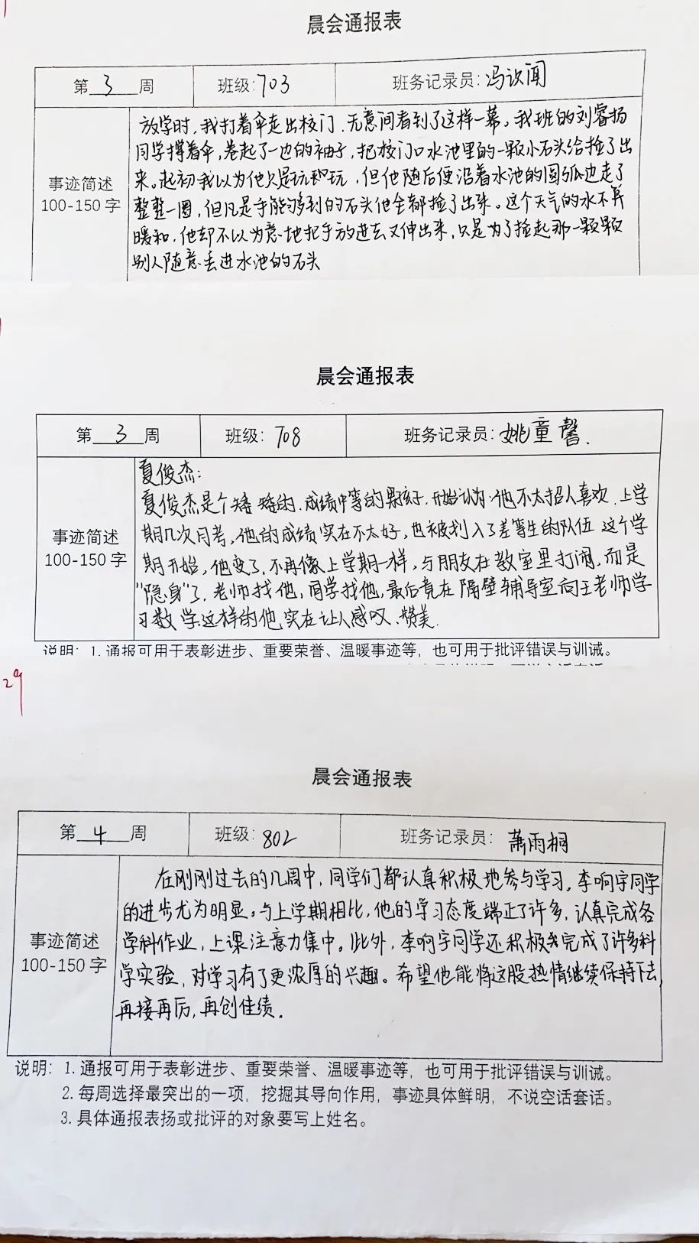 晨会通报表
第 3 周 班级:703 班务记录员:冯识闻
事迹简述
100-150字
放学时,我打着伞走出校门,无意间看到了这样一幕,我班的刘睿扬
同学撑着伞,卷起了一边的袖子,把校门口水池里的一颗小石头给捡了出
来。起初我以为他只是玩和玩,但他随后便沿着水池的圆弧边走了
整整一圈,但凡是手能够到的石头他全都捡了出来。这个天气的水不算
暖和,他却不以为意地把手放进去又伸出来,只是为了捡起那一颗颗
别人随意丢进水池的石头
晨会通报表
第 3 周 班级:708 班务记录员:姚童馨.
事迹简述
100-150字
夏俊杰:
夏俊杰是个矮矮的,成绩中等的男孩子.开始认为:他不太招人喜欢.上学
期几次月考,他的成绩实在不太好,也被划入了差等生的队伍 这个学
期开始,他变了,不再像上学期一样,与朋友在教室里打闹,而是
"隐身"了,老师找他,同学找他,最后竟在隔壁辅导室向王老师学
习数学这样的他,实在让人感叹、赞美.
说明:1.通报可用于表彰进步、重要荣誉、温暖事迹等,也可用于批评错误与训诫。
29
晨会通报表
第 4 周 班级:802 班务记录员:萧雨桐
事迹简述
100-150字
在刚刚过去的几周中,同学们都认真积极地参与学习,李响宇同学
的进步尤为明显。与上学期相比,他的学习态度端正了许多,认真完成各
学科作业,上课注意力集中。此外,李响宇同学还积极完成了许多科
学实验,对学习有了更浓厚的兴趣。希望他能将这股热情继续保持下去,
再接再厉,再创佳绩.
说明:1.通报可用于表彰进步、重要荣誉、温暖事迹等,也可用于批评错误与训诫。
2.每周选择最突出的一项,挖掘其导向作用,事迹具体鲜明,不说空话套话。
3.具体通报表扬或批评的对象要写上姓名。